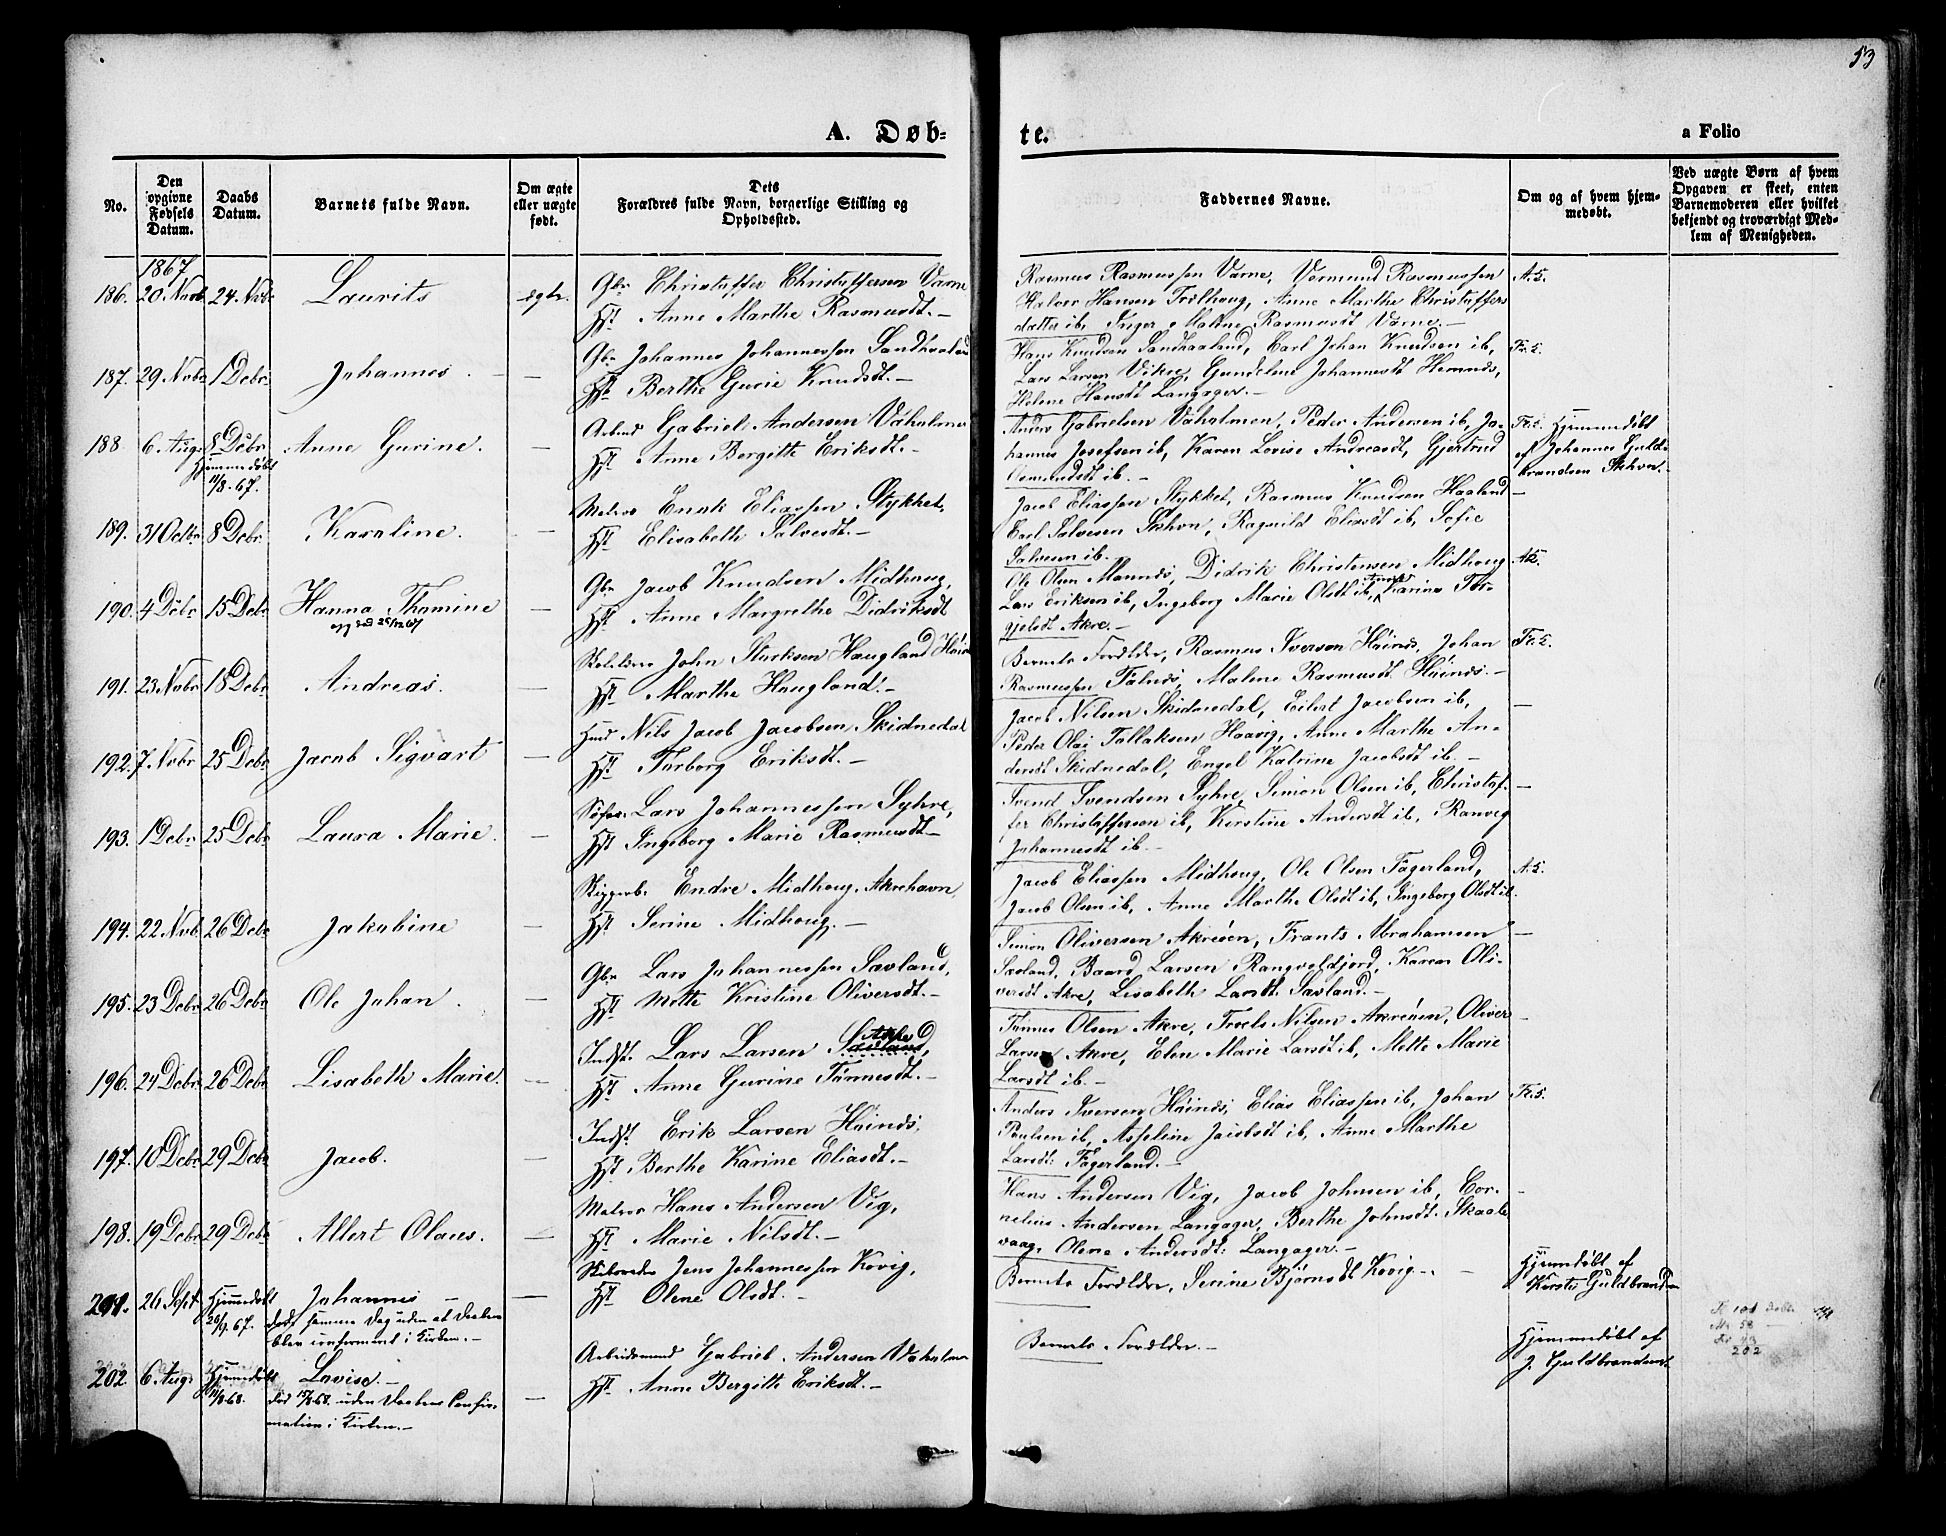 53
A. Døb-
te.
a Folio
No.
Den opgivne Fødsels Datum.
Daabs Datum.
Barnets fulde Navn.
Om ægte eller uægte født.
Dets Forældres fulde Navn, borgerlige Stilling og Opholdssted.
Faddernes Navne.
Om og af hvem hjemmedøbt.
Ved uægte Børn af hvem Opgaven er skeet, enten Barnemoderen eller hvilket bekjendt og troværdigt Medlem af Menigheden.
1867
186. 20 Novb. 24. Nvbr Laurits ægte.
Gbr Christoffer Christoffersen Værne
Hst. Anne Marthe Rasmusdt. –
Rasmus Rasmussen Værne, Vormund Rasmussen
Halvor Hansen Trølhoug, Anne Marthe Christoffers
datter ib, Inger Malene Rasmusdt Værne. –
A. S.
187. 29 Nvbr 1 Debr. Johannes. —
Gbr Johannes Johannessen Sandhaaland
Hst. Berthe Gurie Knudsdt. –
Hans Knudsen Sandhaaland, Carl Johan Knudsen ib,
Lars Larsen Vikre, Gundelene Johannesdt Hemnes,
Helene Hansdt Langager. –
Fr. S.
188 6 Aug. 8 Debr. Anne Gurine. —
Hjemmedøbt
11/8. 67.
Arbmd Gabriel Andersen Vaholmen
Hst. Anne Bergitte Eriksdt. –
Anders Gabrielsen Vaholmen, Peder Andersen ib, Jo-
hannes Josefsen ib, Karen Lovise Andreasdt, Gjertrud
Osmundsdt ib. –
Fr. S. Hjemmedøbt
af Johannes Guld-
brandsen Skhvn. –
189. 31 Octbr. 8 Debr. Karoline. —
Matros Enok Eliassen Stykket,
Hst. Elisabeth Salvesdt. –
Jacob Eliassen Stykket, Rasmus Knudsen Haaland
Carl Salvesen Skhvn, Ragnild Eliasdt ib, Sofie
Salvesen ib.
—
190. 4 Debr 15 Debr. Hanna Thomine —
Gbr Jacob Knudsen Midhoug,
Hst. Anne Margrethe Didriksdt
Ole Olsen Mannes, Didrik Christensen Midhoug
Lars Eriksen ib, Ingeborg Marie Olsdt ib, Anne Karina Tor-
gjelsdt Akre. –
Ak.
191. 23 Nvbr 18 Debr. Andreas. —
John Sturksen Haugland
Hst. Marthe Haugland. –
Barnets Forældre, Rasmus Iversen Høines, Johan
Rasmussen Falnes, Malene Rasmusdt Høines. –
Fr. S.
192. 7 Nvbr 25 Debr. Jacob Sigvart —
Hmd Nils Jacob Jacobsen Skidnedal
Hst. Torborg Eriksdt. –
Jacob Nilsen Skidnedal, Eilert Jacobsen ib,
Peder Olai Tollaksen Haavig, Anne Marthe An-
dersdt Skidnedal, Engel Katrine Jacobsdt ib. –
—
193. 1 Debr 25 Debr Laura Marie. —
Lars Johannessen Syhre,
Hst Ingeborg Marie Rasmusdt –
Svend Svendsen Syhre, Simon Olsen ib, Christof-
fer Christoffersen ib, Kerstine Andersdt ib, Ranveg
Johannesdt ib. –
—
194. 22 Nvb. 26 Debr Jakobine —
Skipperb. Endre Midhoug, Akrehavn,
Hst. Serine Midhoug. –
Jacob Eliassen Midhoug, Ole Olsen Fagerland,
Jacob Olsen ib, Anne Marthe Olsdt ib, Ingeborg Olsdt ib.
A. S.
195. 23 Debr 26 Debr Ole Johan. —
Gbr Lars Johannessen Sævland,
Hst. Mette Kristine Oliversdt. –
Simon Oliversen Akreøen, Frants Abrahamsen
Sævland, Baard Larsen Rangveldjord, Karen Oli-
versdt Akre, Lisabeth Larsdt. Sævland. –
—
196. 24 Debr. 26 Debr Lisabeth Marie. —
Indst. Lars Larsen Akre Sævland,
Hst. Anne Gurine Tønnesdt. –
Tønnes Olsen Akre, Troels Nilsen Akreøen, Oliver
Larsen Akre, Elen Marie Larsdt ib, Mette Marie
Larsdt ib. –
—
197. 10 Debr 29 Debr Jacob. —
Indst. Erik Larsen Høines,
Hst Berthe Karine Eliasdt. –
Anders Iversen Høines, Elias Eliassen ib, Johan
Poulsen ib, Asseline Jacobsdt ib, Anne Marthe
Larsdt: Fagerland. –
Fr. S.
198. 19 Debr 29 Debr Allert Olaus. —
Matros Hans Andersen Vig,
Hst. Marie Nilsdt. –
Hans Andersen Vig, Jacob Johnsen ib, Cor-
nelius Andersen Langager, Berthe Johnsdt. Skaale
vaag, Olene Andersdt: Langager. –
—
201. 26 Sept. Hjemmedøbt Johannes – —
26/9. 67.
døde samme Dag uden at Daaben
blev confirmeret i Kirken. –
Jens Johannessen Kovig,
Hst. Olene Olsdt. –
Barnets Forældre, Serine Bjørnsdt Kovig. –
Hjemmedøbt af
Kersti Guldbrandsen
202 6 Aug. Hjemmedøbt Lovise. – —
11/8. 68.
død 15/8. 68. uden Daabens Confir-
mation i Kirken. –
Arbeidsmand Gabriel Andersen Vaholmen
Hst. Anne Bergitte Eriksdt. –
Barnets Forældre. –
Hjemmedøbt af
J. Guldbrandsen
202